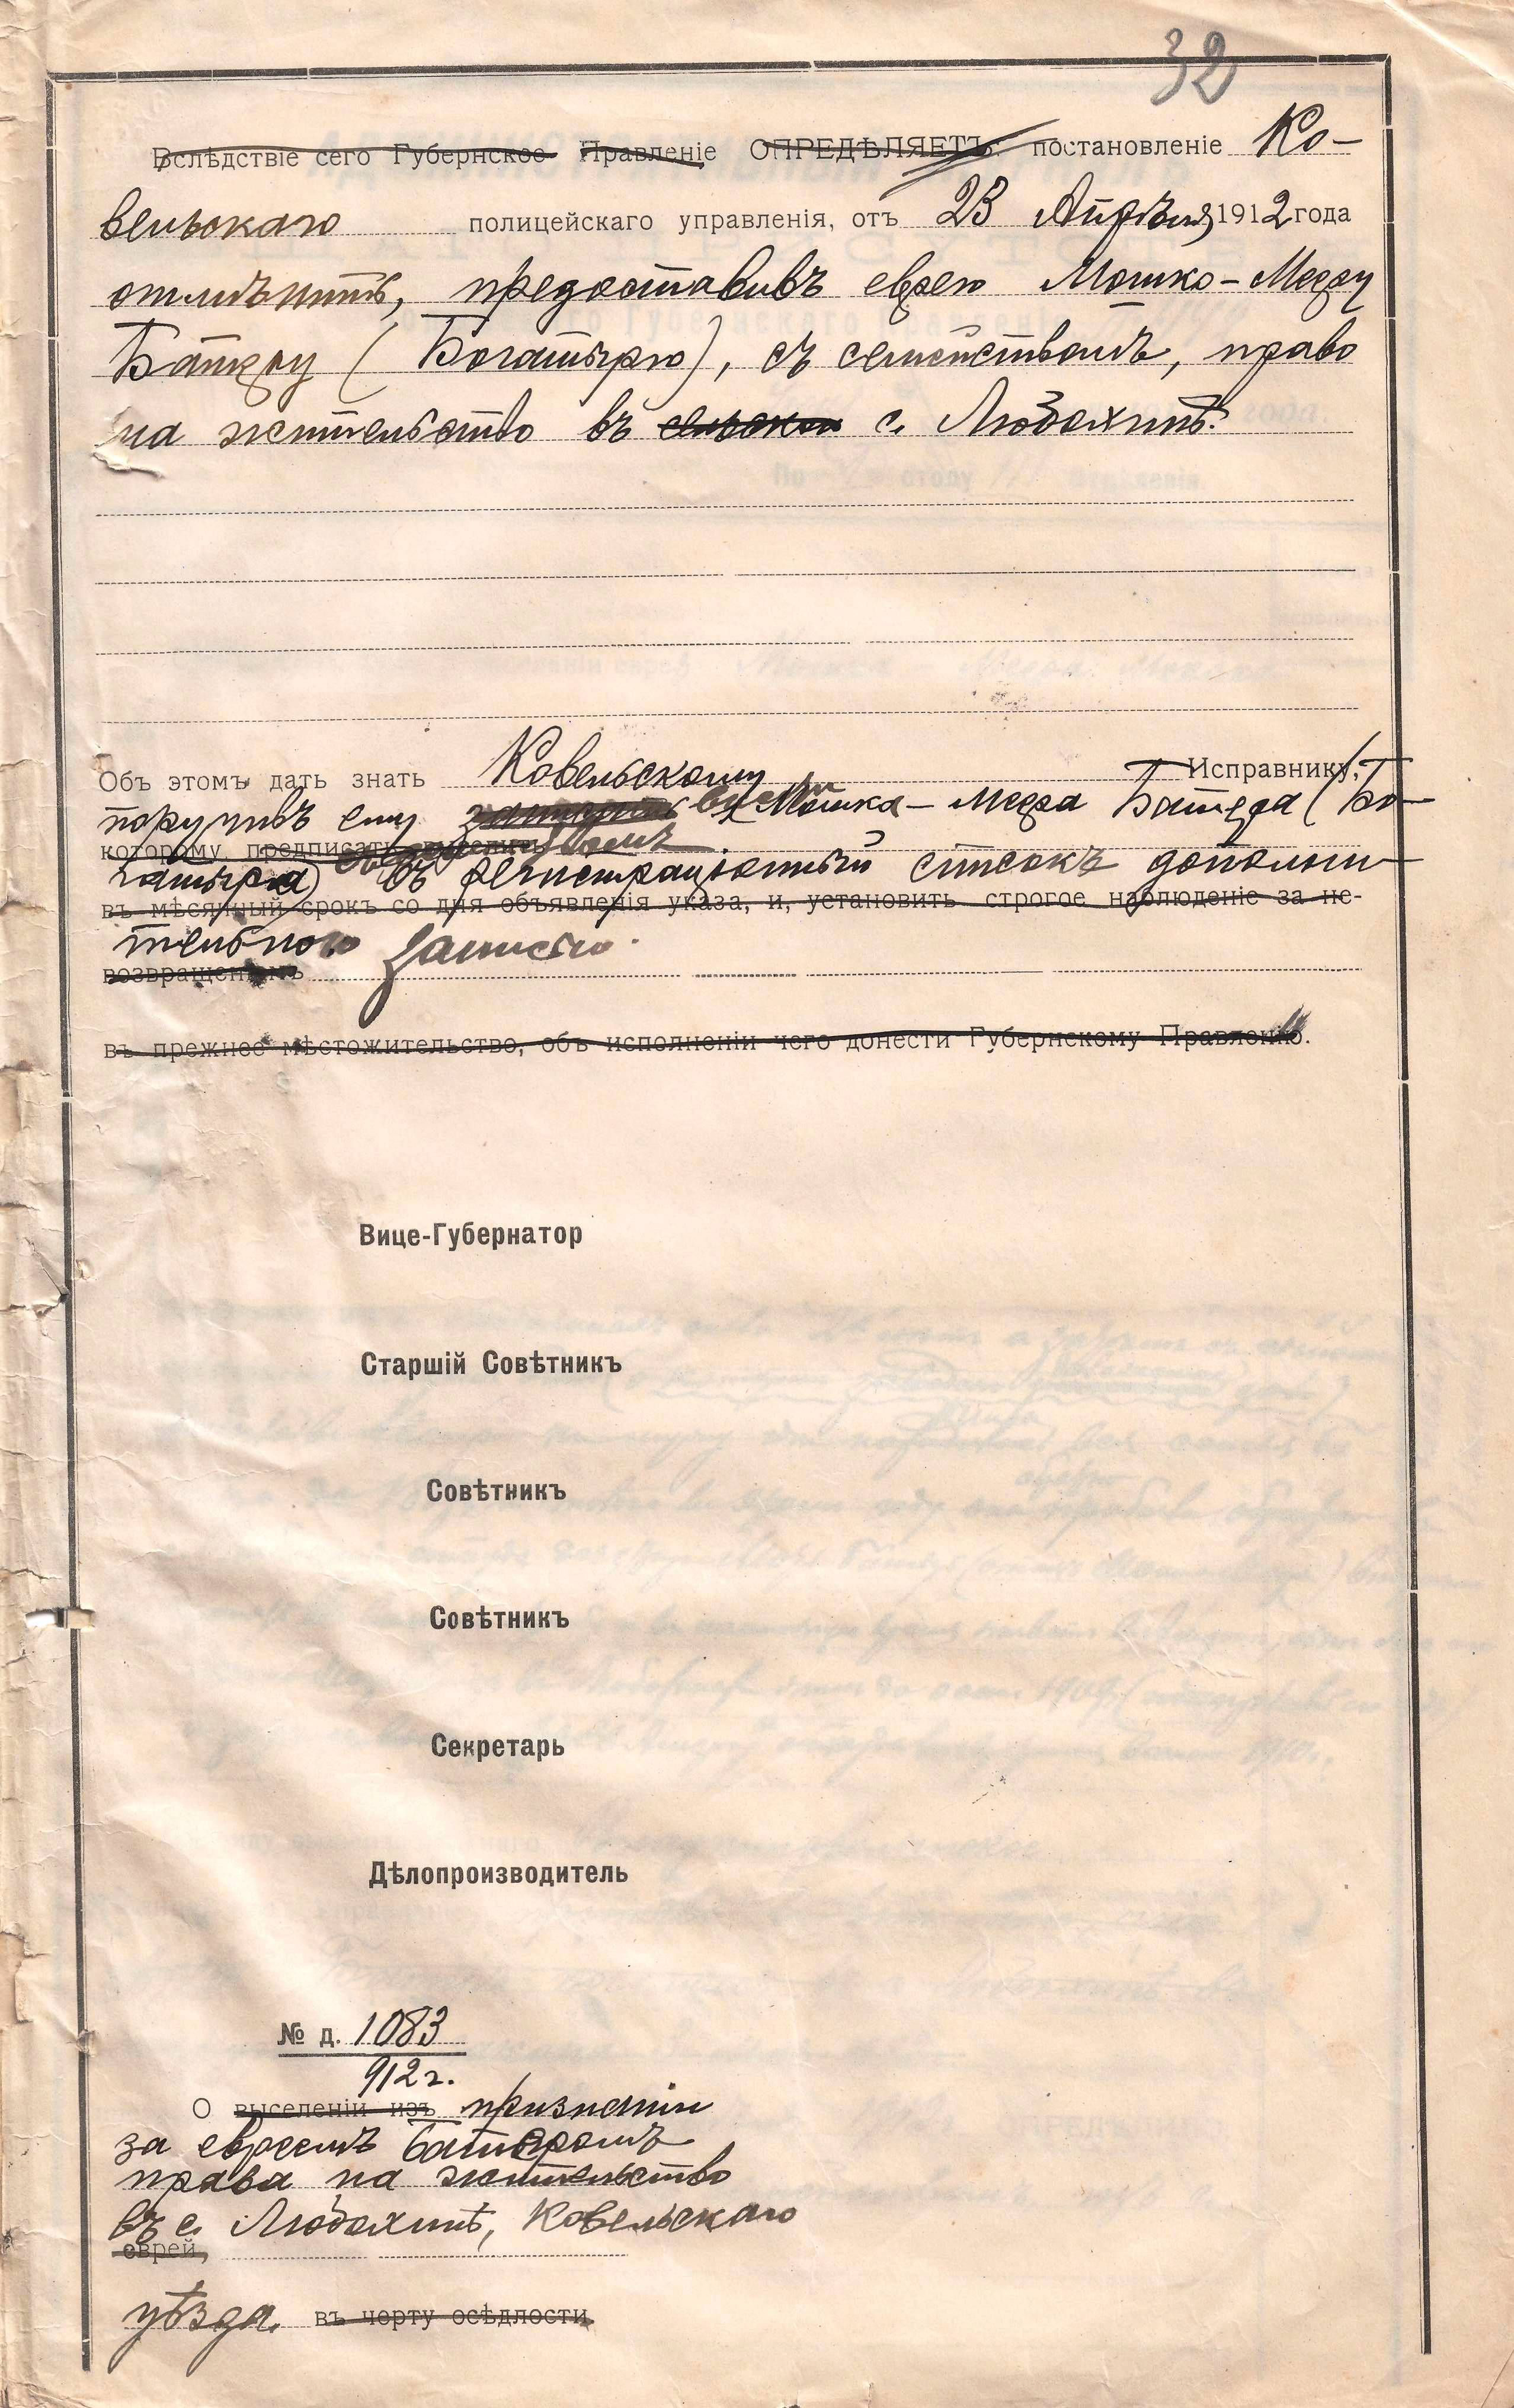 32
Вслѣдствіе сего Губернское Правленіе ОПРЕДѢЛЯЕТЪ: постановленіе Ко-
вельскаго полицейскаго управленія, отъ 23 Апрѣля 1912 года
отмѣнить, предоставивъ еврею Мошко-Мееру
Батеру (Богатырю), съ семействомъ, право
на жительство въ с. Любохинѣ.
Объ этомъ дать знать Ковельскому Исправнику,
поручивъ ему внести Мошка-Меера Батера (Бо-
которому предписать
гатыря) въ регистраціонный списокъ дополни-
въ мѣсячный срокъ со дня объявленія указа, и, установить строгое наблюденіе за не-
тельною записью.
возвращеніемъ
въ прежнее мѣстожительство, объ исполненіи чего донести Губернскому Правленію.
Вице-Губернатор
Старшій Совѣтникъ
Совѣтникъ
Совѣтникъ
Секретарь
Дѣлопроизводитель
№ д. 1083
912 г.
О выселеніи изъ признаніи
за евреемъ Батеромъ
права на жительство
въ с. Любохинѣ, Ковельскаго
еврей,
уѣзда. въ черту осѣдлости